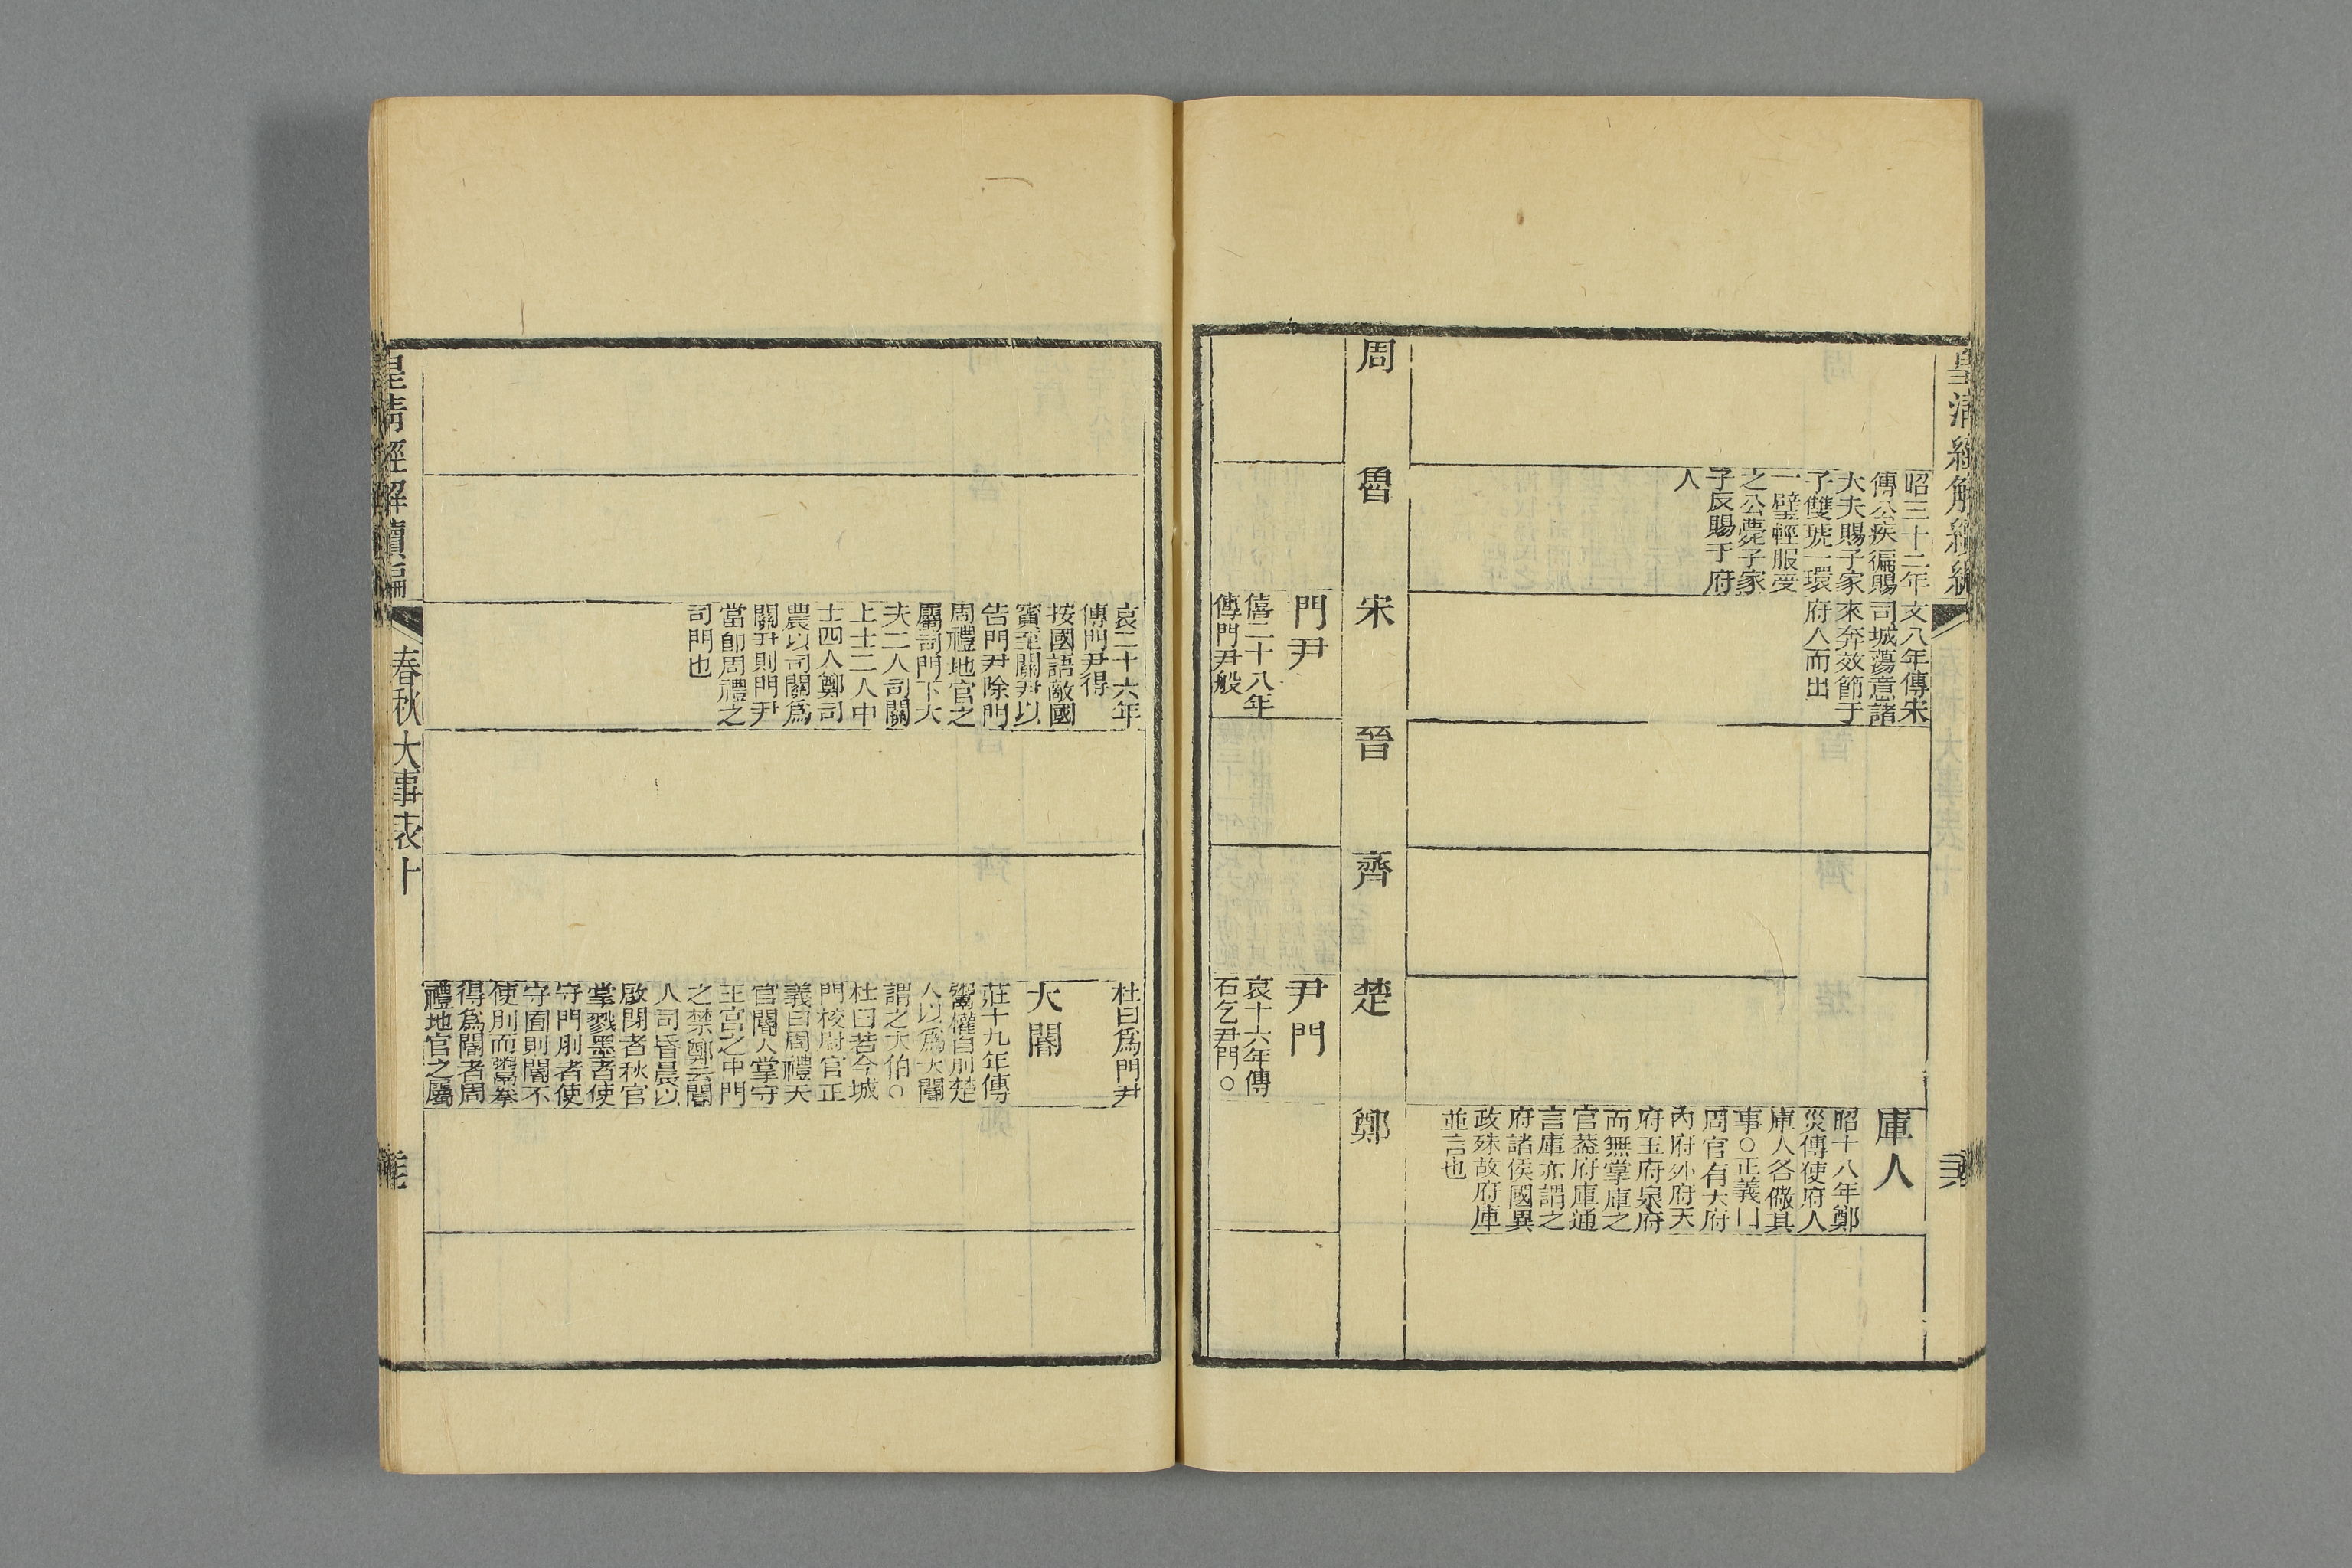 皇清經解續編
昭三十二年
傳公疾徧賜
大夫賜子家
子雙琥一環
一璧輕服受
之公薨子家
子反賜于府
人
文八年傳宋
司城蕩意諸
來奔效節于
府人而出
庫人
昭十八年鄭
災傳使府人
庫人各儆其
事○正義曰
周官有大府
內府外府天
府玉府泉府
而無掌庫之
官葢府庫通
言庫亦謂之
府諸侯國異
政殊故府庫
並言也
周
魯
宋
晉
齊
楚
鄭
門尹
僖二十八年
傳門尹般
尹門
哀十六年傳
石乞尹門○
哀二十六年
傳門尹得
按國語敵國
賓至關尹以
告門尹除門
周禮地官之
屬司門下大
夫二人司關
上士二人中
士四人鄭司
農以司關爲
關尹則門尹
當卽周禮之
司門也
杜曰爲門尹
大閽
莊十九年傳
鬻權自刖楚
人以爲大閽
謂之大伯○
杜曰若今城
門校尉官正
義曰周禮天
官閽人掌守
王宮之中門
之禁鄭云閽
人司昏晨以
啟閉者秋官
掌戮墨者使
守門刖者使
守囿則閽不
使刖而鬻拳
得爲閽者周
禮地官之屬
皇清經解續編
春秋大事表十